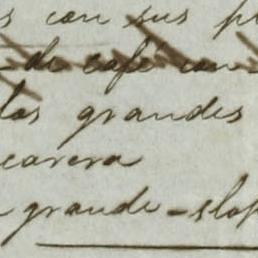 s con sus p
de café con
los grandes
carera
grande - slop